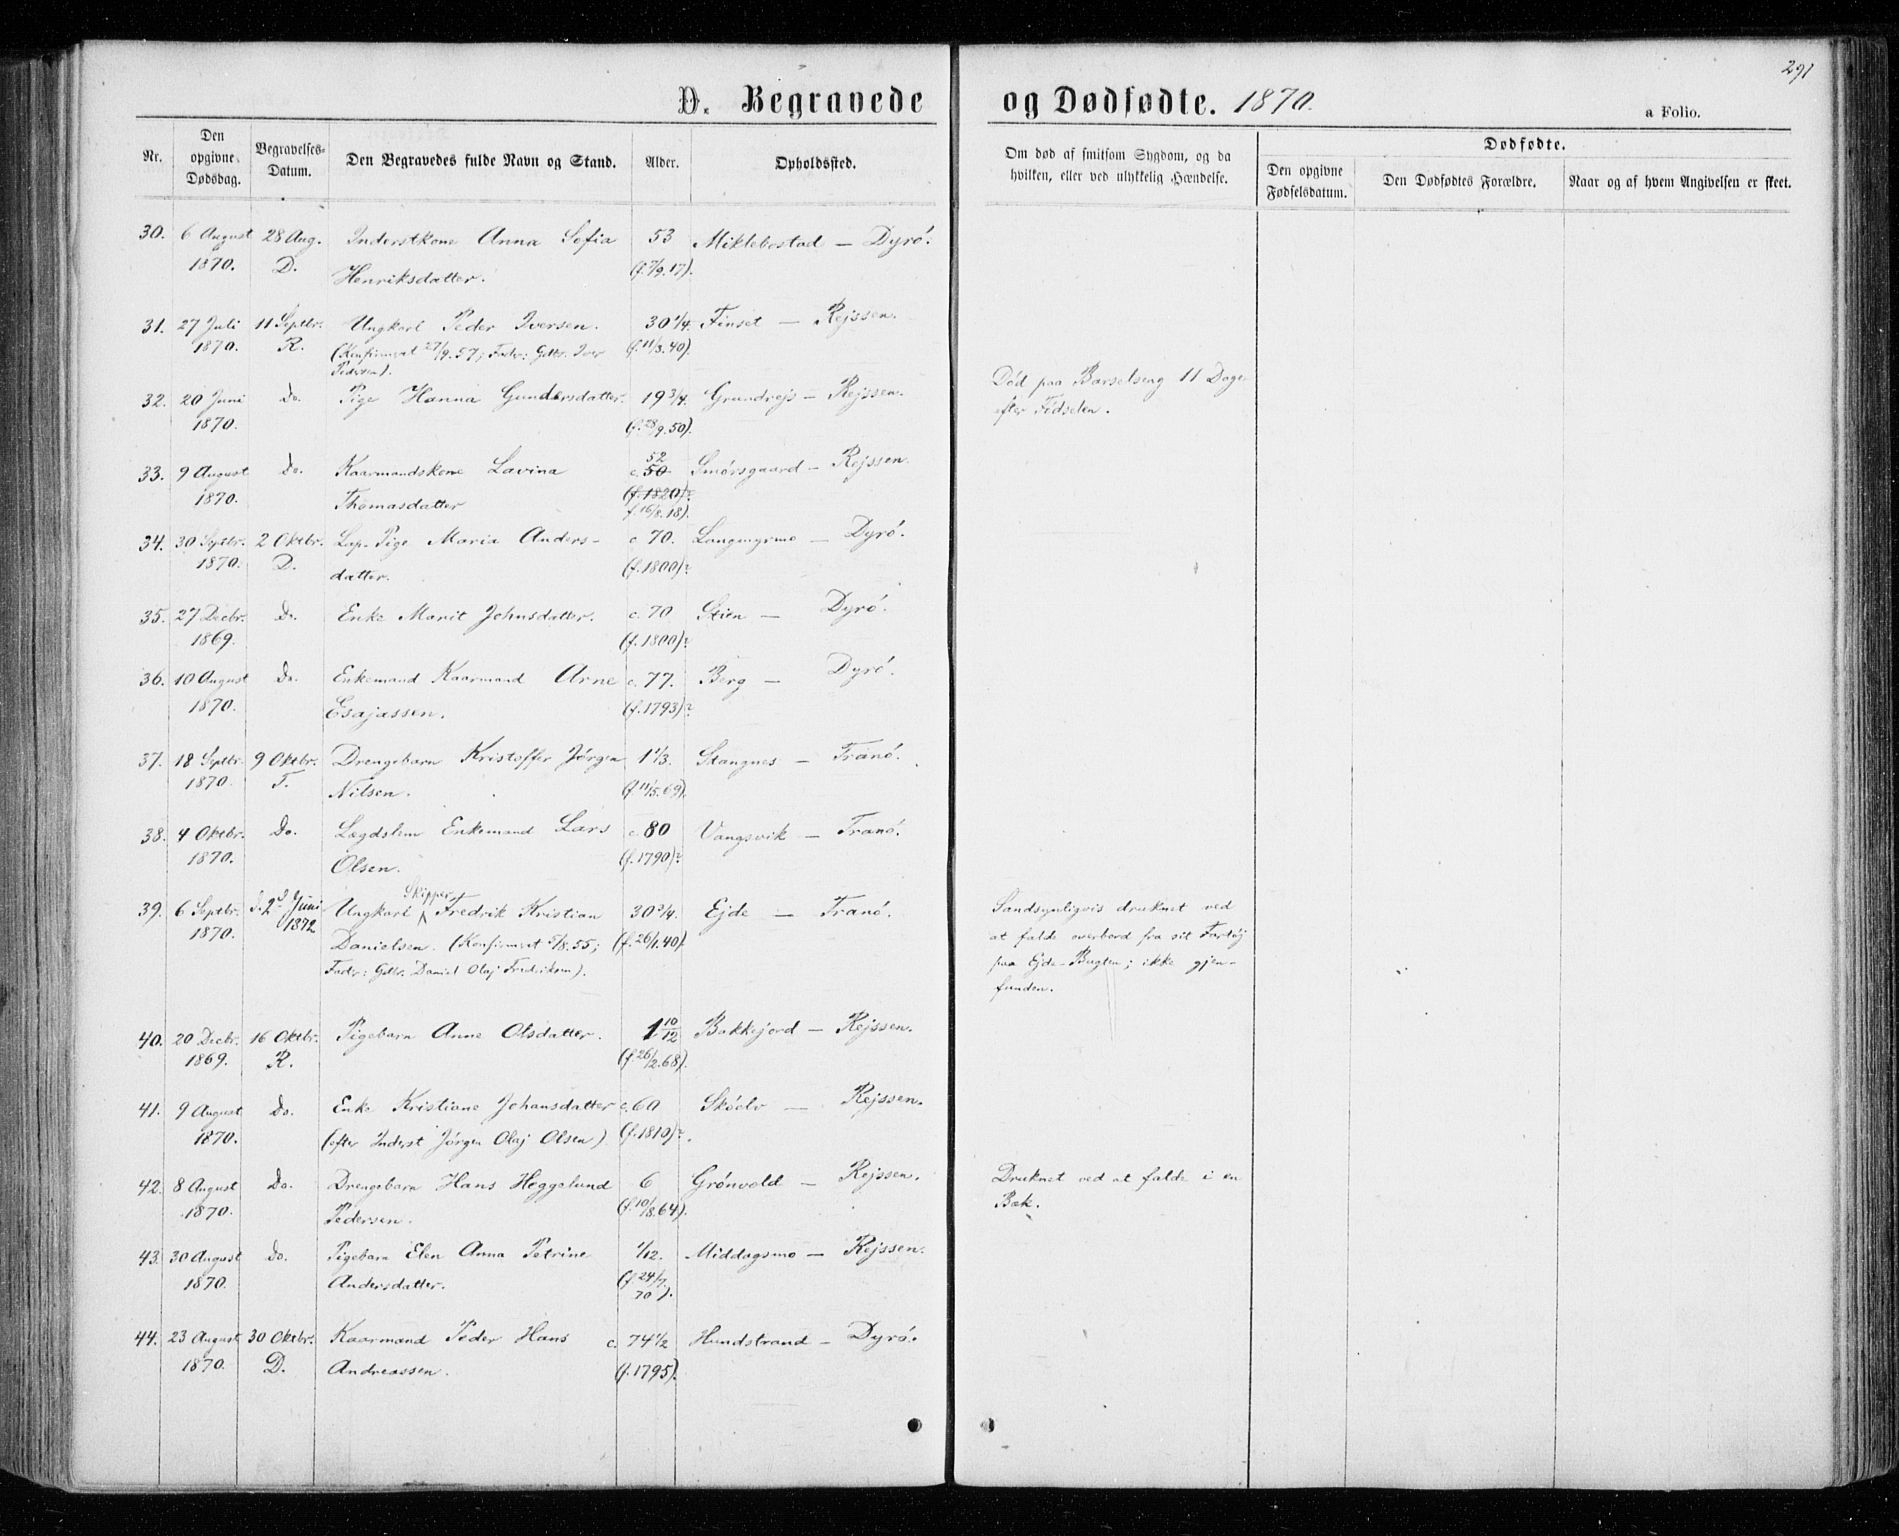 291
D. Begravede og Dødfødte. 1870.
a Folio.
Nr.
Den opgivne Dødsdag.
Begravelses-Datum.
Den Begravedes fulde Navn og Stand.
Alder.
Opholdssted.
Om død af smitsom Sygdom, og da hvilken, eller ved ulykkelig Hændelse.
Dødfødte.
Den opgivne Fødselsdatum.
Den Dødfødtes Forældre.
Naar og af hvem Angivelsen er skeet.
30. 6 August 28 Aug. Inderstkone Anna Sofia 53 Miklebostad — Dyrö.
1870. D. Henriksdatter. (f. 7/9.17).
31. 27 Juli 11 Septbr. Ungkarl Peder Iversen. 30 1/4. Finset — Rejssen.
1870. R. (Konfirmeret 27/9.57; Fader: Gdbr. Iver (f. 11/3.40).
Pedersen).
32. 20 Juni Do. Pige Hanna Gundersdatter. 19 3/4. Grundrejs — Rejssen. Død paa Barselseng 11 Dage
1870. (f. 28/9.50). efter Fødselen.
33. 9 August Do. Kaarmandskone Lavina 52 c. 50 Smörsgaard — Rejssen.
1870. Thomasdatter (f. 1820)?
f. 16/8.18).
34. 30 Septbr. 2 Oktbr. Lap-Pige Maria Anders- c. 70. Langmyrmo — Dyrö.
1870. D. datter. (f. 1800)?
35. 27 Decbr. Do. Enke Marit Johnsdatter. c. 70 Stien — Dyrö.
1869. (f. 1800)?
36. 10 August Do. Enkemand Kaarmand Arne c. 77. Berg — Dyrö.
1870. Esajassen. (f. 1793)?
37. 18 Septbr. 9 Oktbr. Drengebarn Kristoffer Jörgen 1 1/3. Stangnes — Tranö.
1870. T. Nilsen. (f. 11/5.69).
38. 4 Oktbr. Do. Lægdslem Enkemand Lars c. 80 Vangsvik — Tranö.
1870. Olsen. (f. 1790)?
Skipper
39. 6 Septbr. d. 2d Juni Ungkarl Fredrik Kristian 30 3/4. Ejde — Tranö. Sandsynligvis druknet ved
1870. 1872 Danielsen. (Konfirmeret 5/8.55; (f. 26/1.40). at falde overbord fra sit Fartöj
Fader: Gdbr. Daniel Olaj Fredriksen). paa Ejde-Bugten; ikke gjen-
funden.
40. 20 Decbr. 16 Oktbr. Pigebarn Anne Olsdatter. 1 10/12 Bakkejord — Rejssen.
1869. R. (f. 26/2.68).
41. 9 August Do. Enke Kristiane Johansdatter c. 60 Sköelv — Rejssen.
1870. (efter Inderst Jörgen Olaj Olsen) (f. 1810)?
42. 8 August Do. Drengebarn Hans Heggelund 6 Grönvold — Rejssen. Druknet ved at falde i en
1870. Pedersen. (f. 10/8.64). Bæk.
43. 30 August Do. Pigebarn Elen Anna Petrine 1/12. Middagsmo — Rejssen.
1870. Andersdatter. (f. 24/7.
70).
44. 23 August 30 Oktbr. Kaarmand Peder Hans c. 74 1/2 Hundstrand — Dyrö.
1870. D. Andreassen. (f. 1795).